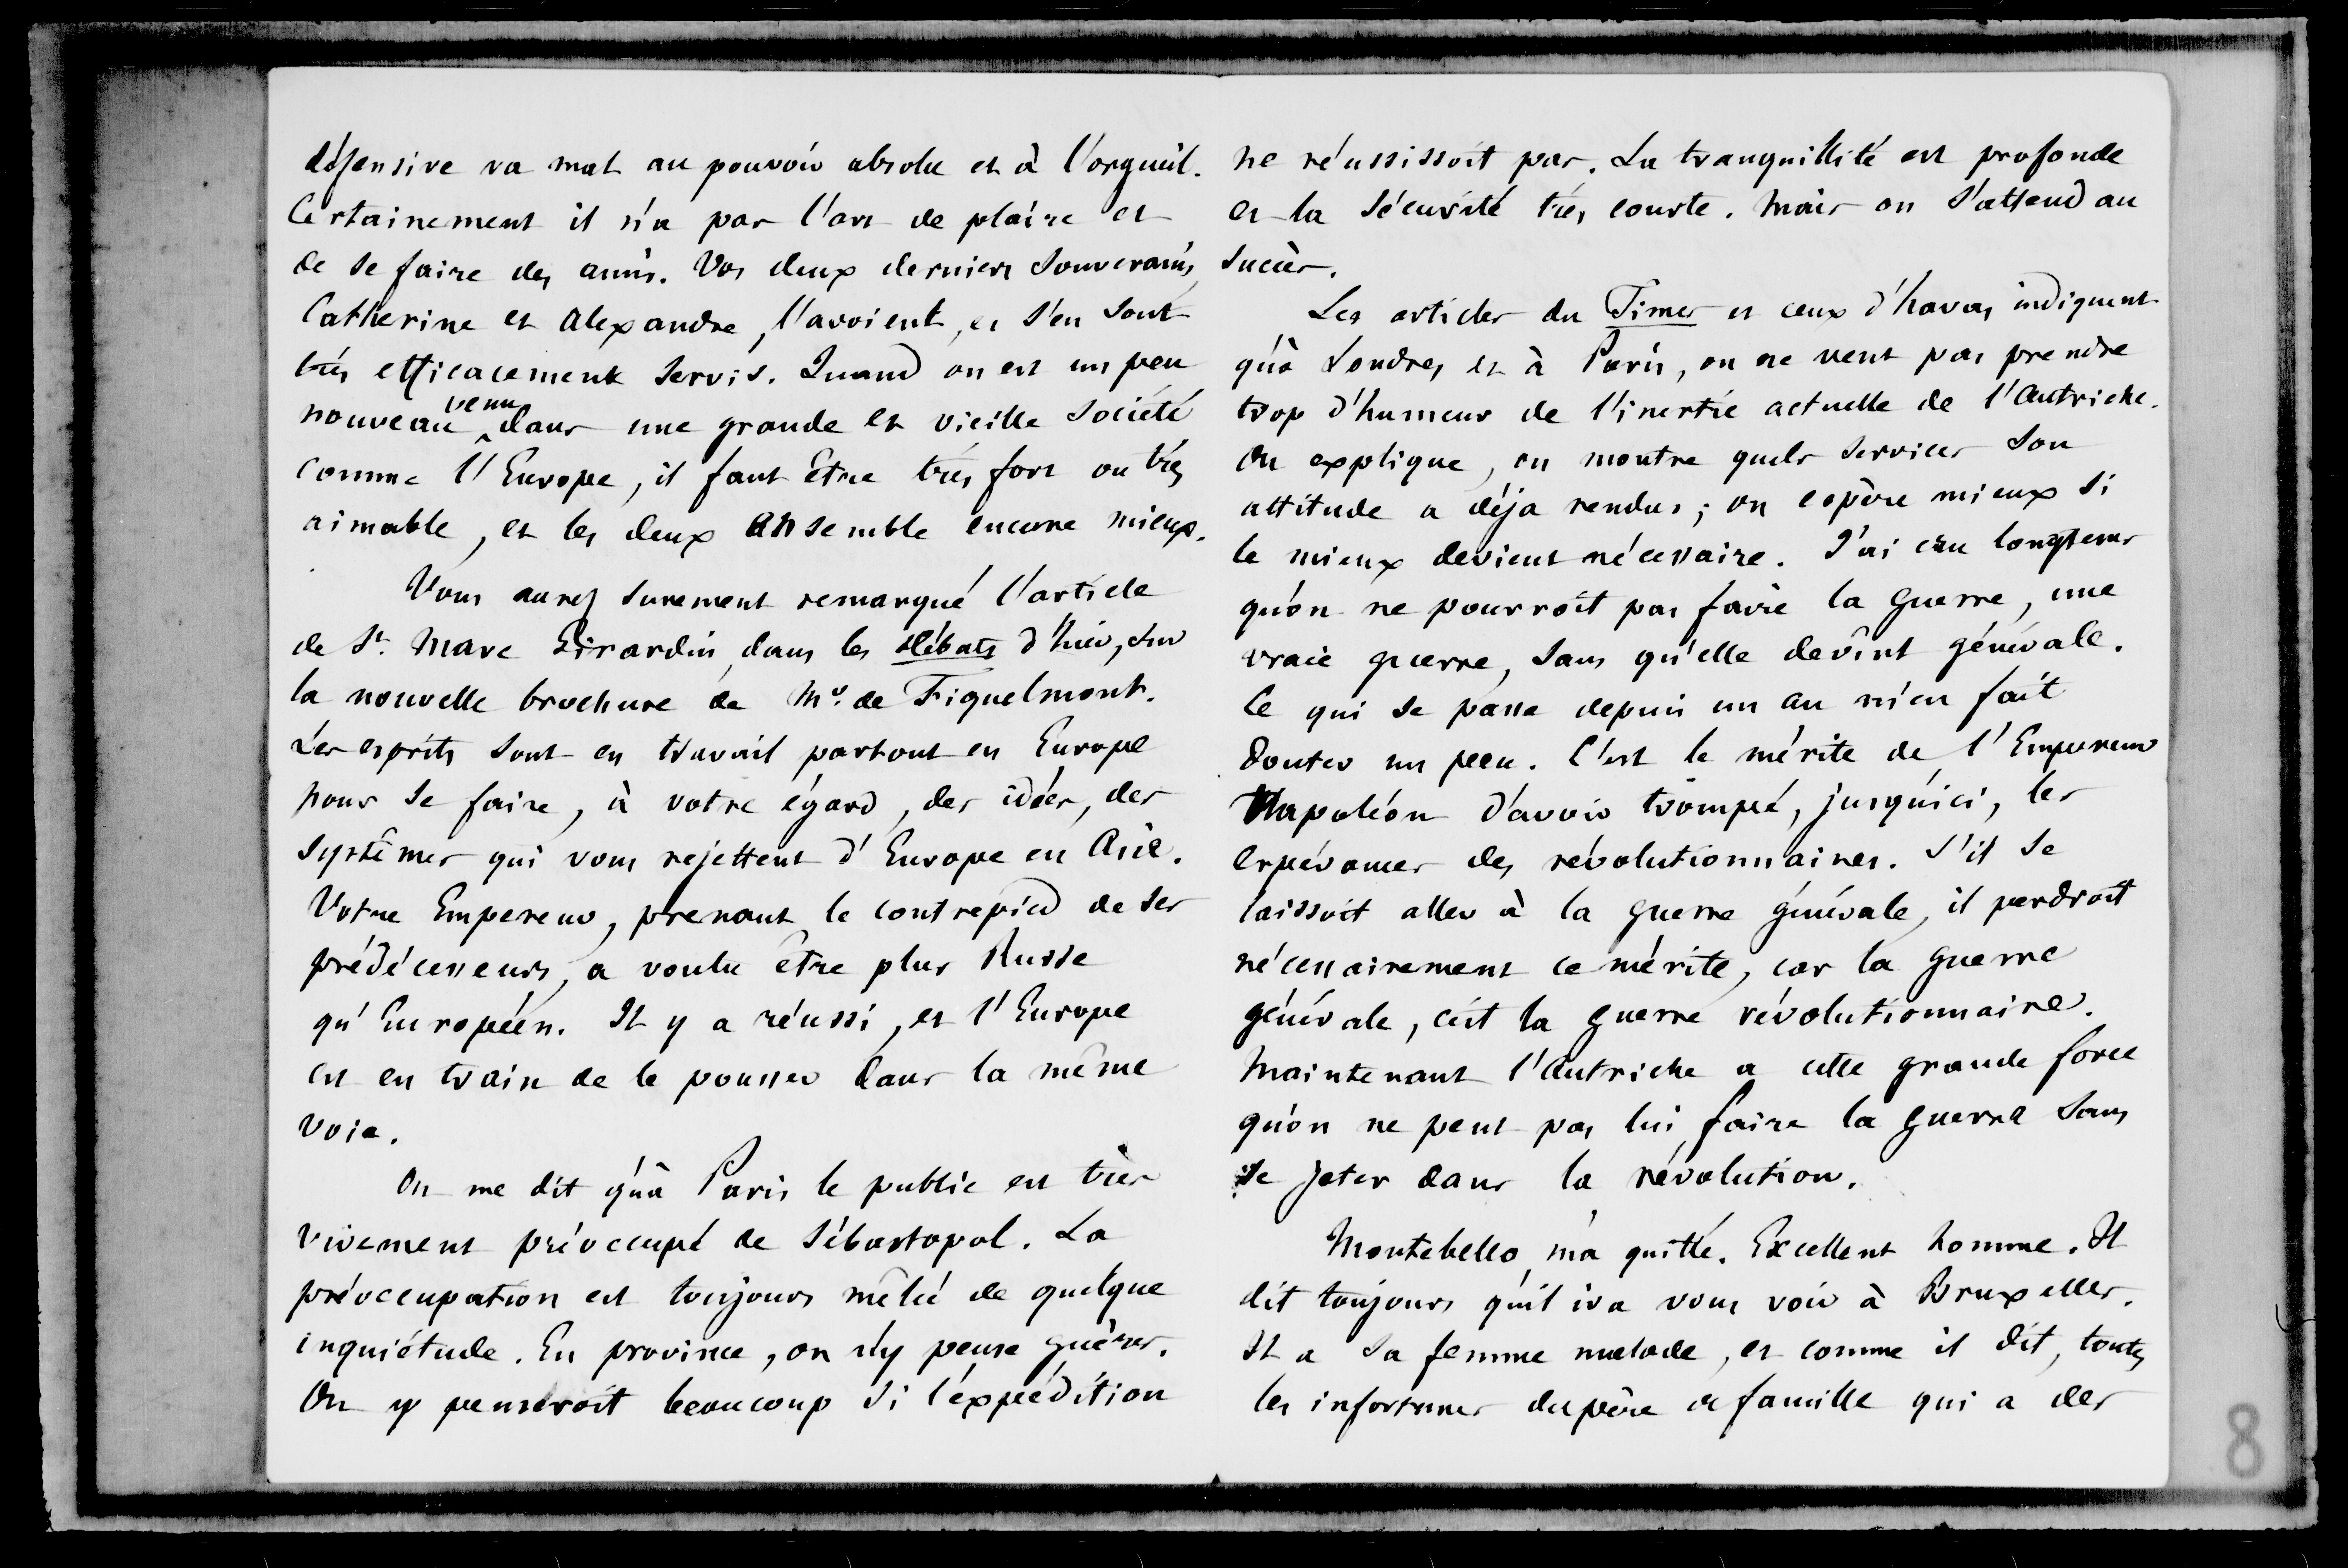 défensive va mal au pouvoir absolu et à l'orgueil.
Certainement il n'a pas l'art de plaire et
de se faire des amis. Vos deux derniers Souverains,
Catherine et Alexandre, l'avoient, et s'en sont
très efficacement servis. Quand on est un peu
nouveau venu dans une grande et vieille société
comme l'Europe, il faut être très fort ou très
aimable, et les deux ensemble encore mieux.
Vous aurez surement remarqué l'article
de St. Marc Girardin, dans les Débats d'hier, sur
la nouvelle brochure de Mr. de Fiquelmont.
Les esprits sont en travail partout en Europe
pour se faire, à votre égard, des idées, des
systêmes qui vous rejettent d'Europe en Asie.
Votre Empereur, prenant le contrepied de ses
prédécesseurs, a voulu être plus Russe
qu'Européen. Il y a réussi, et l'Europe
est en train de le pousser dans la même
voie.
On me dit qu'à Paris le public est très
vivement préoccupé de Sébastopol. La
préoccupation est toujours mêlée de quelque
inquiétude. En province, on n'y pense guères.
On y penseroit beaucoup si l'expédition
ne réussissoit pas. La tranquillité est profonde
et la sécurité très courte. Mais on s'attend au
succès.
Les articles du Times et ceux d'havas indiquent
qu'à Londres et à Paris, on ne veut pas prendre
trop d'humeur de l'inertie actuelle de l'Autriche.
On explique, on montre quels services son
attitude a déja rendus; on espère mieux si
le mieux devient nécessaire. J'ai cru longtems
qu'on ne pourroit pas faire la guerre, une
vraie guerre, sans qu'elle devînt générale.
Ce qui se passe depuis un an m'en fait
douter un peu. C'est le mérite de l'Empereur
Napoléon d'avoir trompé, jusqu'ici, les
espérances des révolutionnaires. S'il se
laissoit aller à la guerre générale, il perdroit
nécessairement ce mérite, car la guerre
générale, c'est la guerre révolutionnaire.
Maintenant l'Autriche a cette grande force
qu'on ne peut pas lui faire la guerre sans
se jeter dans la révolution.
Montebello m'a quitté. Excellent homme. Il
dit toujours qu'il ira vous voir à Bruxelles.
Il a sa femme malade, et comme il dit, toutes
les infortunes du père de famille qui a des
8